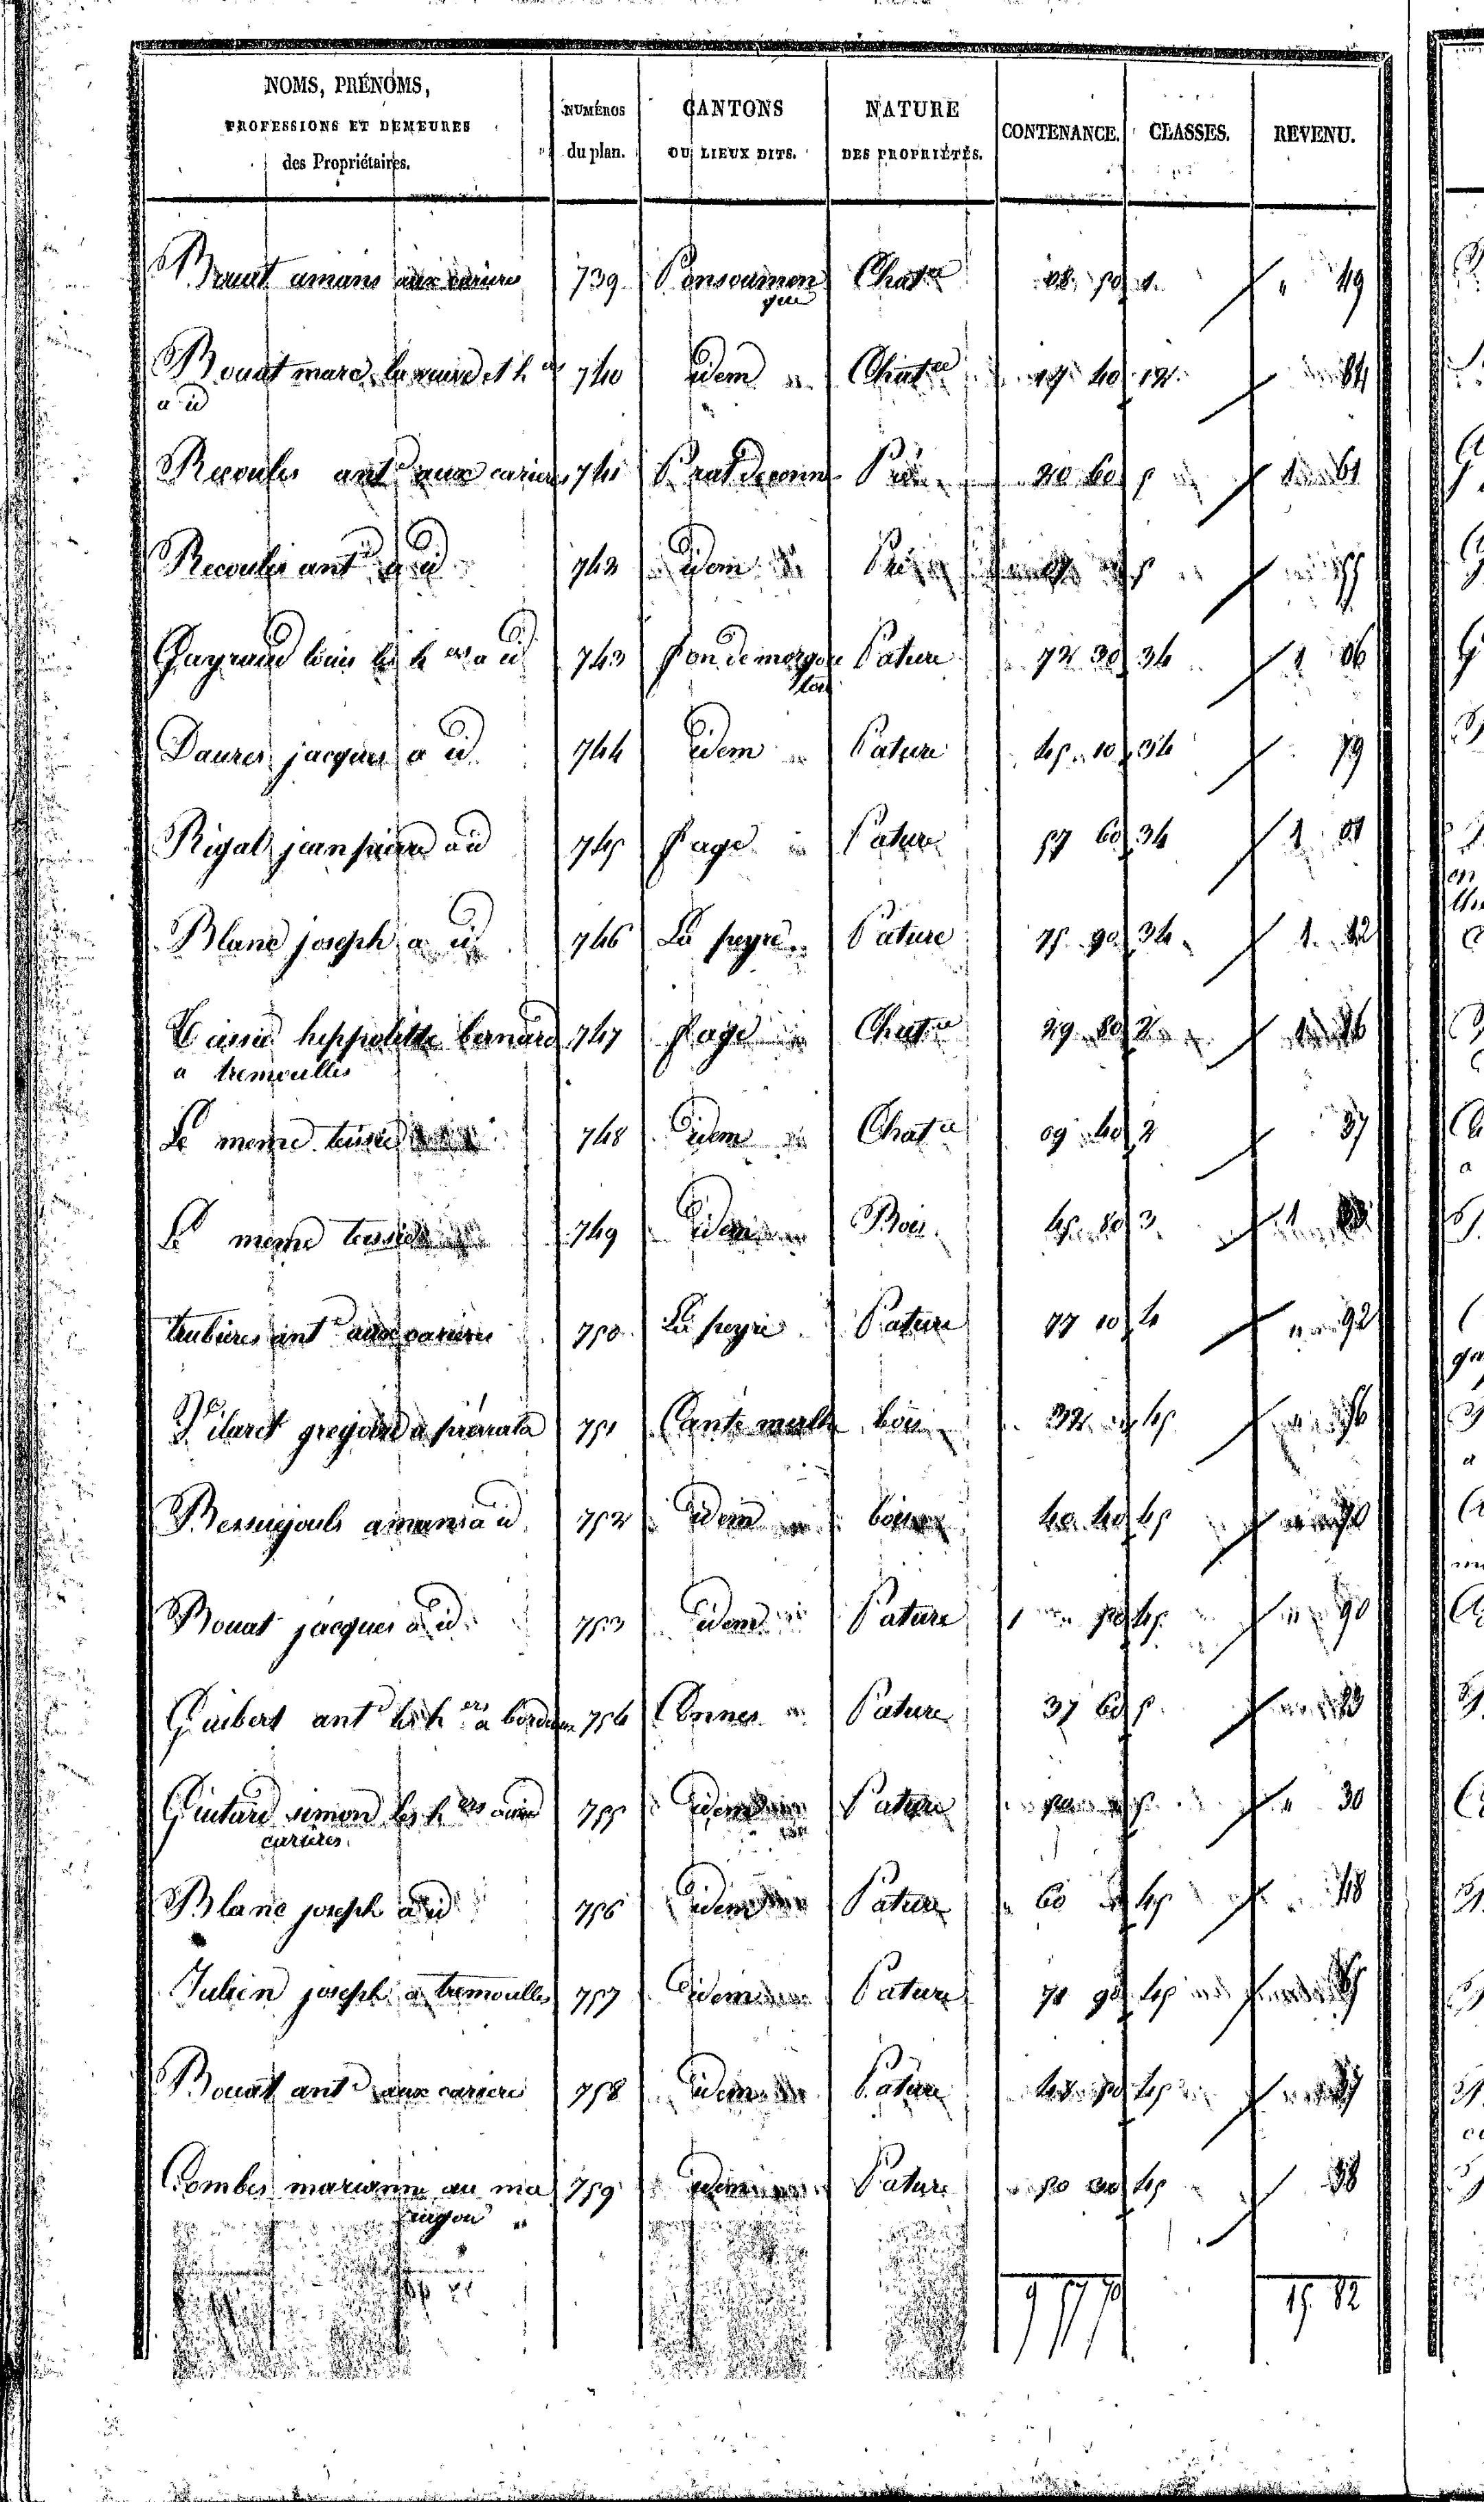 NOMS, PRÉNOMS,
PROFESSIONS ET DEMEURES
des Propriétaires.
NUMÉROS
du plan.
CANTONS
OU LIEUX DITS.
NATURE
DES PROPRIÉTÉS.
CONTENANCE.
CLASSES.
REVENU.
Bouat amans aux carieres 739 Chat.re 1 " 49
Bouat marc la veuve et h.ers 740 idem Chat.re 17 40 12 84
a id
Recoules ant.e aux carieres 741 Pré 20 60 5 1 61
Recoules ant.e a id 742 idem Pré 5 55
Gayraud louis les h.ers a id 743 Pature 72 30 34 1 06
Daures jacques a id 744 idem Pature 45 10 34 79
Rigal jean pierre a id 745 fage Pature 57 60 34 1 01
Blanc joseph a id 746 La peyre Pature 75 90 34 1 12
heppolitte bernard 747 fage Chat.re 29 80 2 1
a tremouilles
Le meme 748 idem Chat.re 09 40 2 37
Le meme 749 idem Bois 45 80 3 1
trubieres ant.e aux carieres 750 La peyre Pature 77 10 4 " 92
gregoire a 751 bois 32 45 56
Bessuejouls amans a id 752 idem bois 40 40 45 70
Bouat jacques a id 753 idem Pature 1 " 50 45 " 90
Guibert ant.e les h.ers a bordeaux 754 Connes Pature 37 60 5 23
Guitard simon les h.ers aux 755 idem Pature 50 5 " 30
carieres
Blanc joseph a id 756 idem Pature 60 45 48
Julien joseph a tremouilles 757 idem Pature 71 90 45
Bouat ant.e aux carieres 758 idem Pature 45 37
Combes marianne au ma 759 idem Pature 50 45 38
9 57 70 15 82